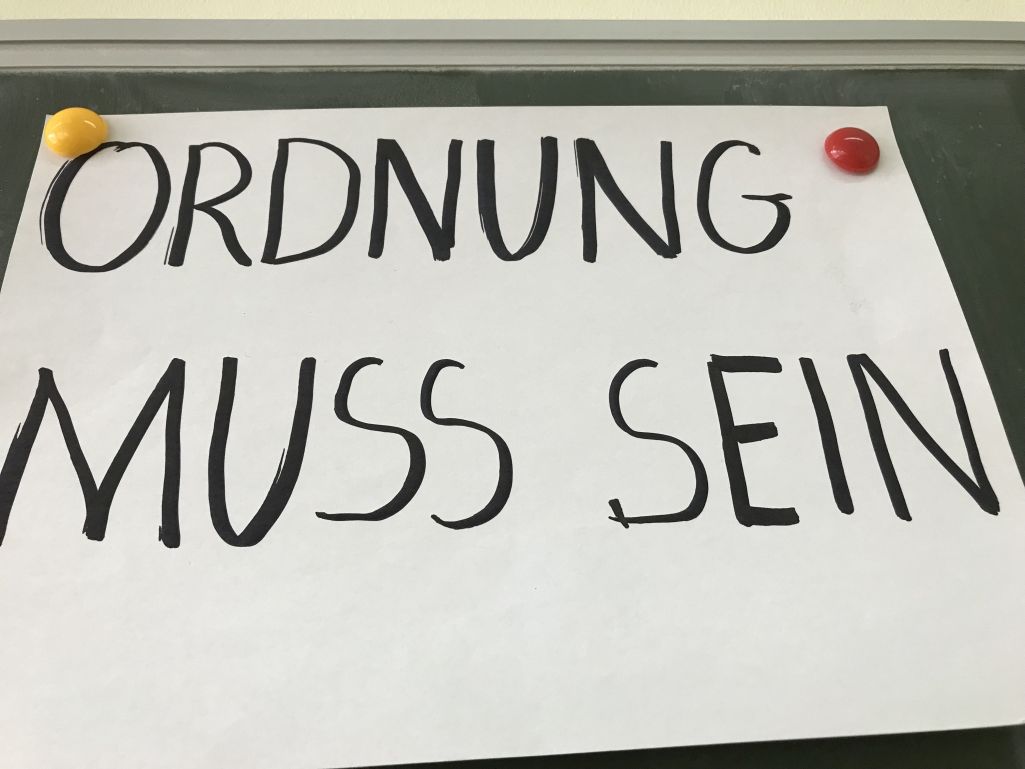 ORDNUNG
MUSS SEIN